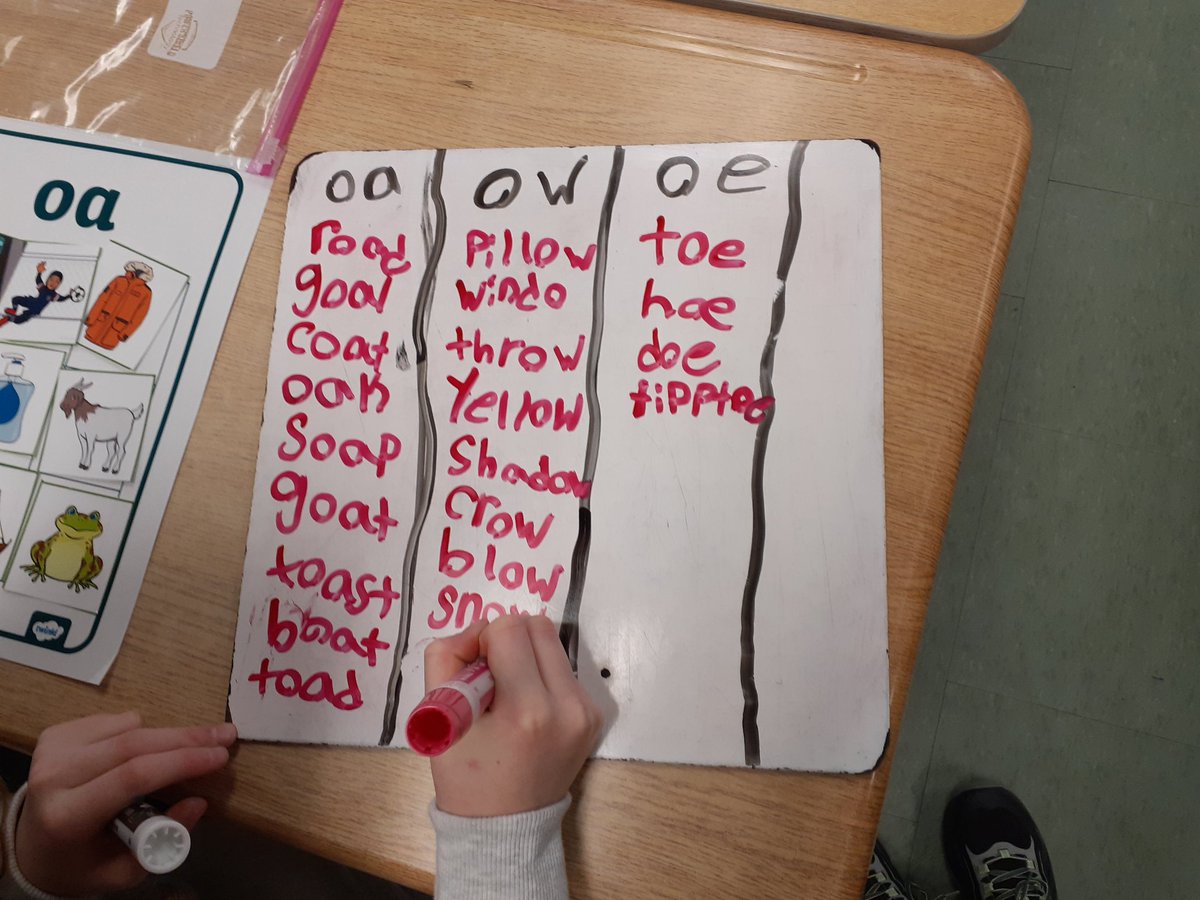 oa
twinkl
oa
road
goal
coat
oak
soap
goat
toast
boat
toad
ow
pillow
windo
throw
yellow
shadow
crow
blow
snow
oe
toe
hoe
doe
tipptoe